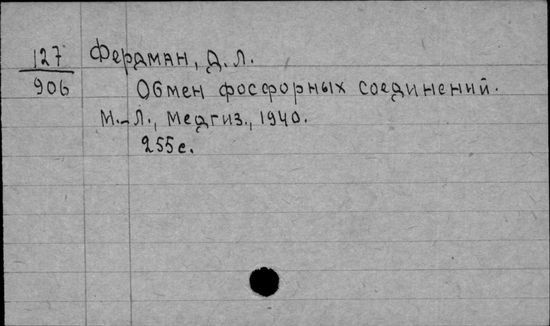 127 Фердман, Д. Л.
906 Обмен фосфорных соединений.
М.-Л., Медгиз., 1940.
255с.